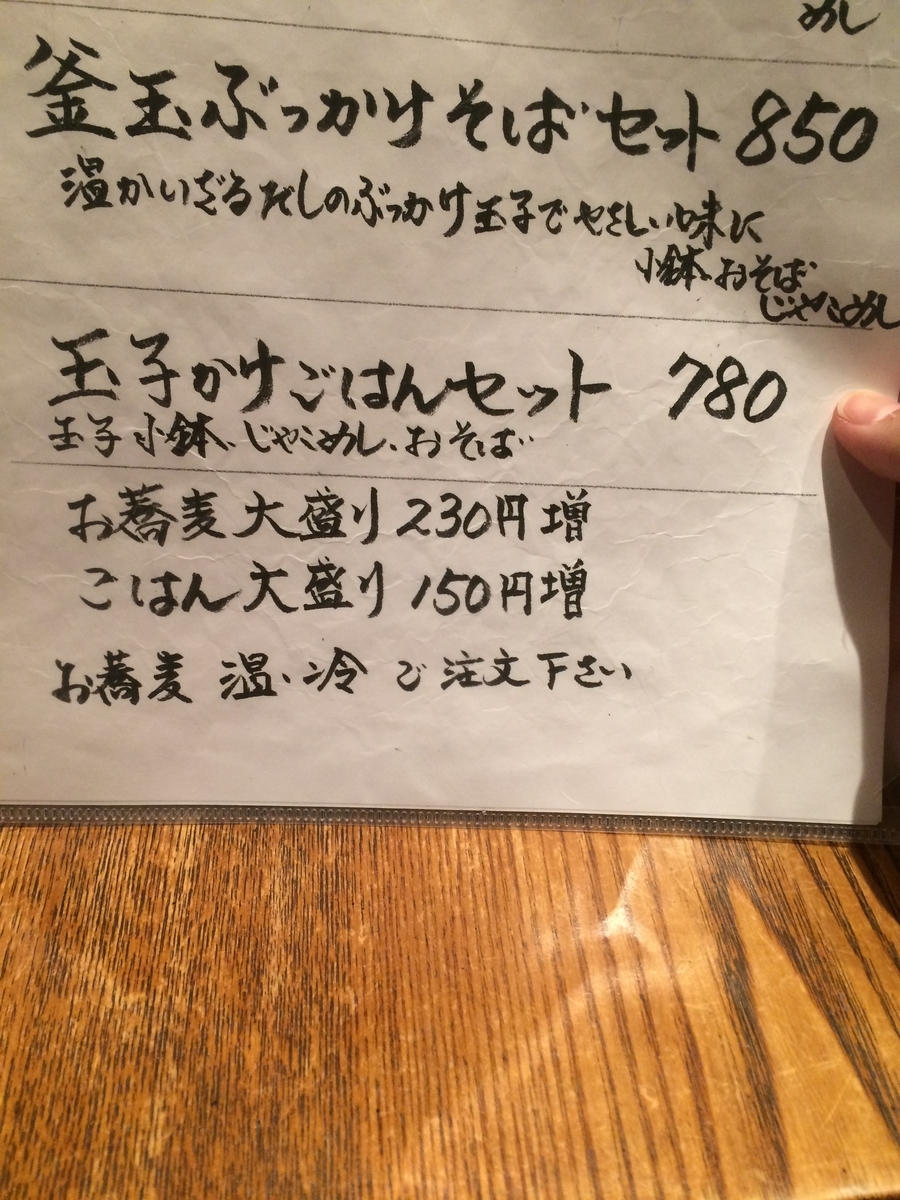 めし
釜玉ぶっかけそばセット 850
温かいざるだしのぶっかけ玉子でやさしい味に
小鉢、おそば
じゃこめし
玉子かけごはんセット 780
玉子 小鉢、じゃこめし、おそば
お蕎麦大盛り 230円増
ごはん大盛り 150円増
お蕎麦 温・冷 ご注文下さい